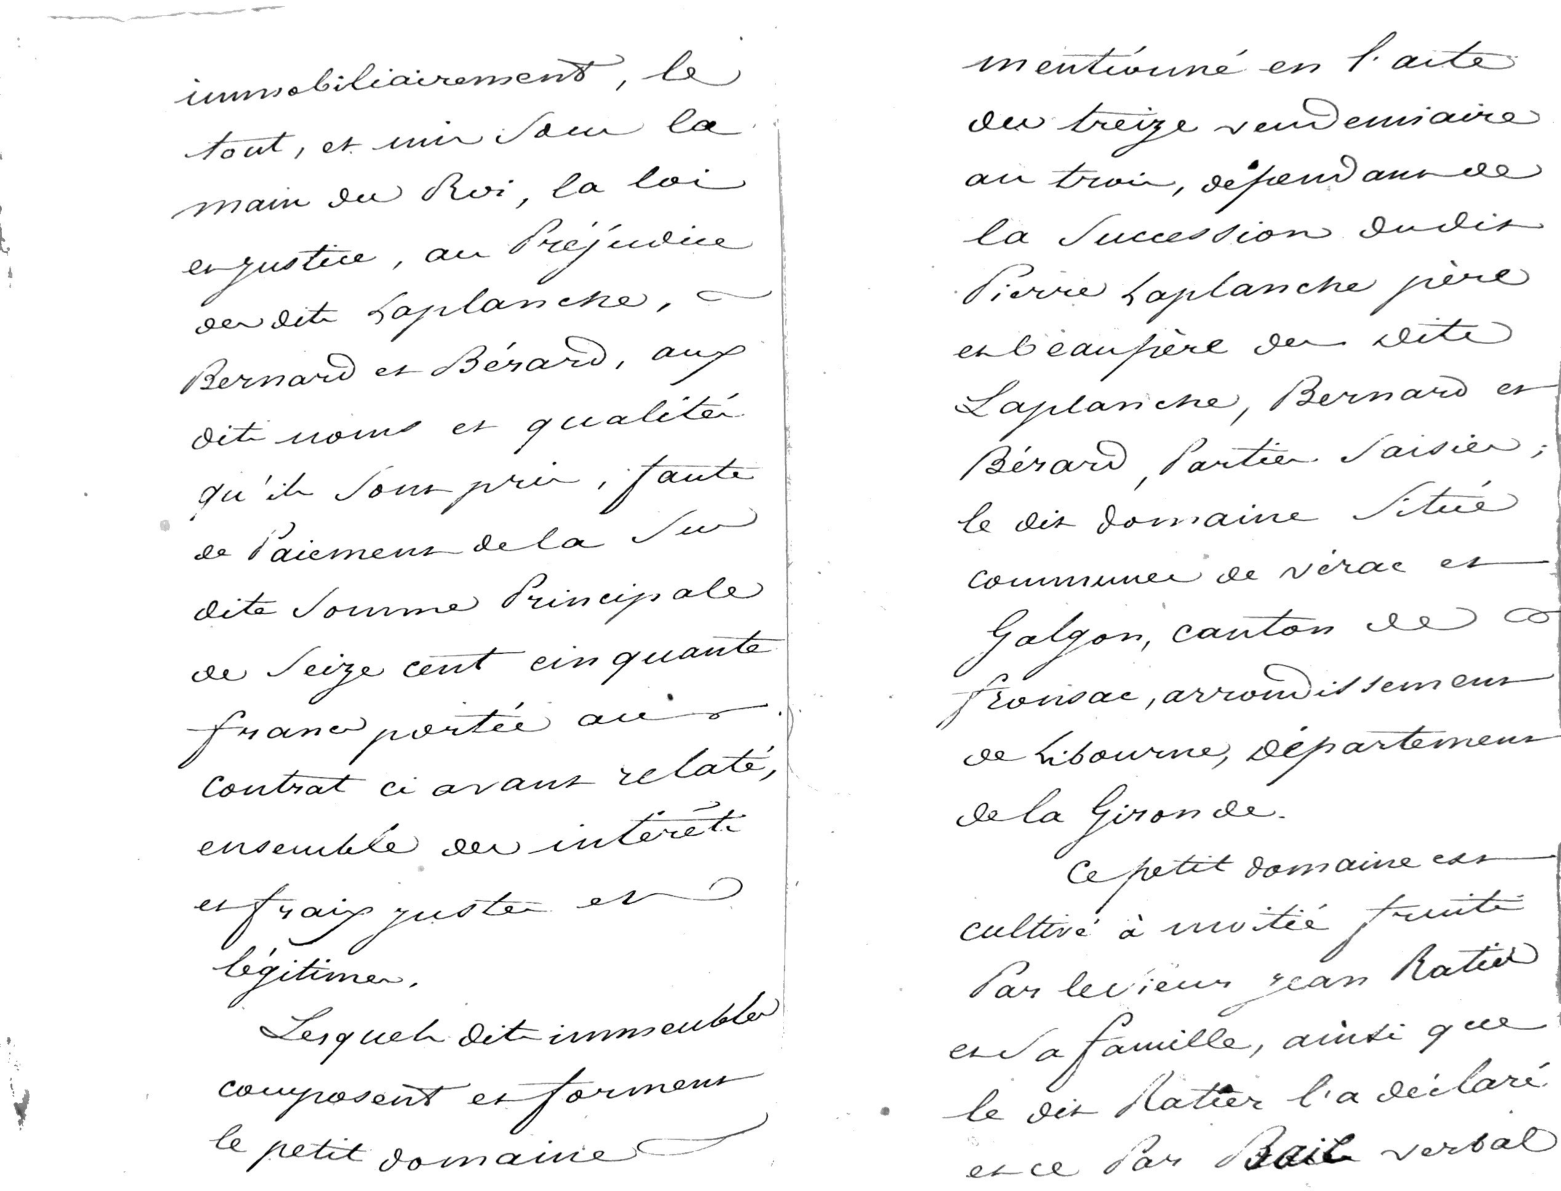 immobiliairement, le
tout, et mis sous la
main du Roi, la loi
et justice, au Préjudice
des dits Laplanche,
Bernard et Bérard, aux
dits noms et qualités
qu'ils sont pris, faute
de Paiement de la Sus
dite Somme Principale
de Seize cent cinquante
francs portée au
contrat ci avant relaté,
ensemble des intérêts
et fraix justes et
légitimes.
Lesquels dits immeubles
composent et forment
le petit domaine
mentionné en l'acte
du treize vendemiaire
an trois, dépendant de
la Succession dudit
Pierre Laplanche père
et beaupère des dits
Laplanche, Bernard et
Bérard, Parties Saisies;
le dit domaine Situé
communes de vérac et
Galgon, canton de
fronsac, arrondissement
de Libourne, département
de la Gironde.
Ce petit domaine est
cultivé à moitié fruits
Par le Sieur Jean Ratier
et Sa famille, ainsi que
le dit Ratier l'a déclaré
et ce Par Bail verbal